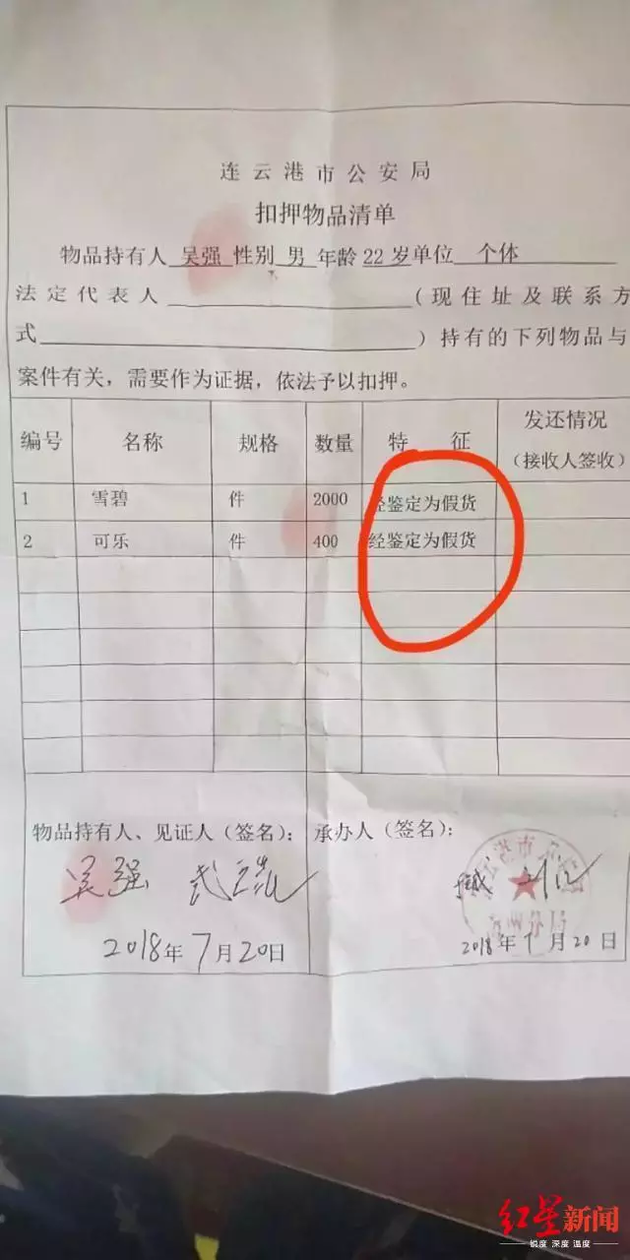 连云港市公安局
扣押物品清单
物品持有人 吴强 性别 男 年龄 22 岁单位 个体
法定代表人 (现住址及联系方
式 ）持有的下列物品与
案件有关，需要作为证据，依法予以扣押。
编号 名称 规格 数量 特 征 发还情况
（接收人签收）
1 雪碧 件 2000 经鉴定为假货
2 可乐 件 400 经鉴定为假货
物品持有人、见证人（签名）： 承办人（签名）：
吴强
2018年7月20日 2018年7月20日
红星新闻
锐度 深度 温度